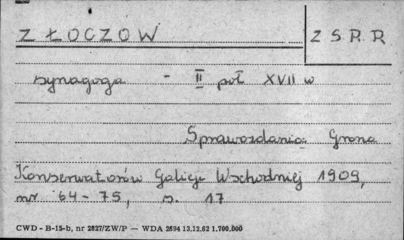 ZŁOCZÓW
Z S R R
synagoga - II poł XVII w
Sprawozdania Grona
Konserwatorów Galicji Wschodniej 1909,
nr 64-75, s. 17
CWD - B-15-b, nr 2827/ZW/P — WDA 2694 13.12.62 1.700.000